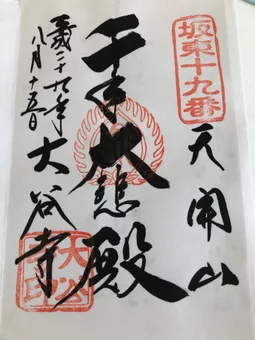 坂東十九番
天開山
千手大悲殿
大谷寺
平成二十九年
八月十五日